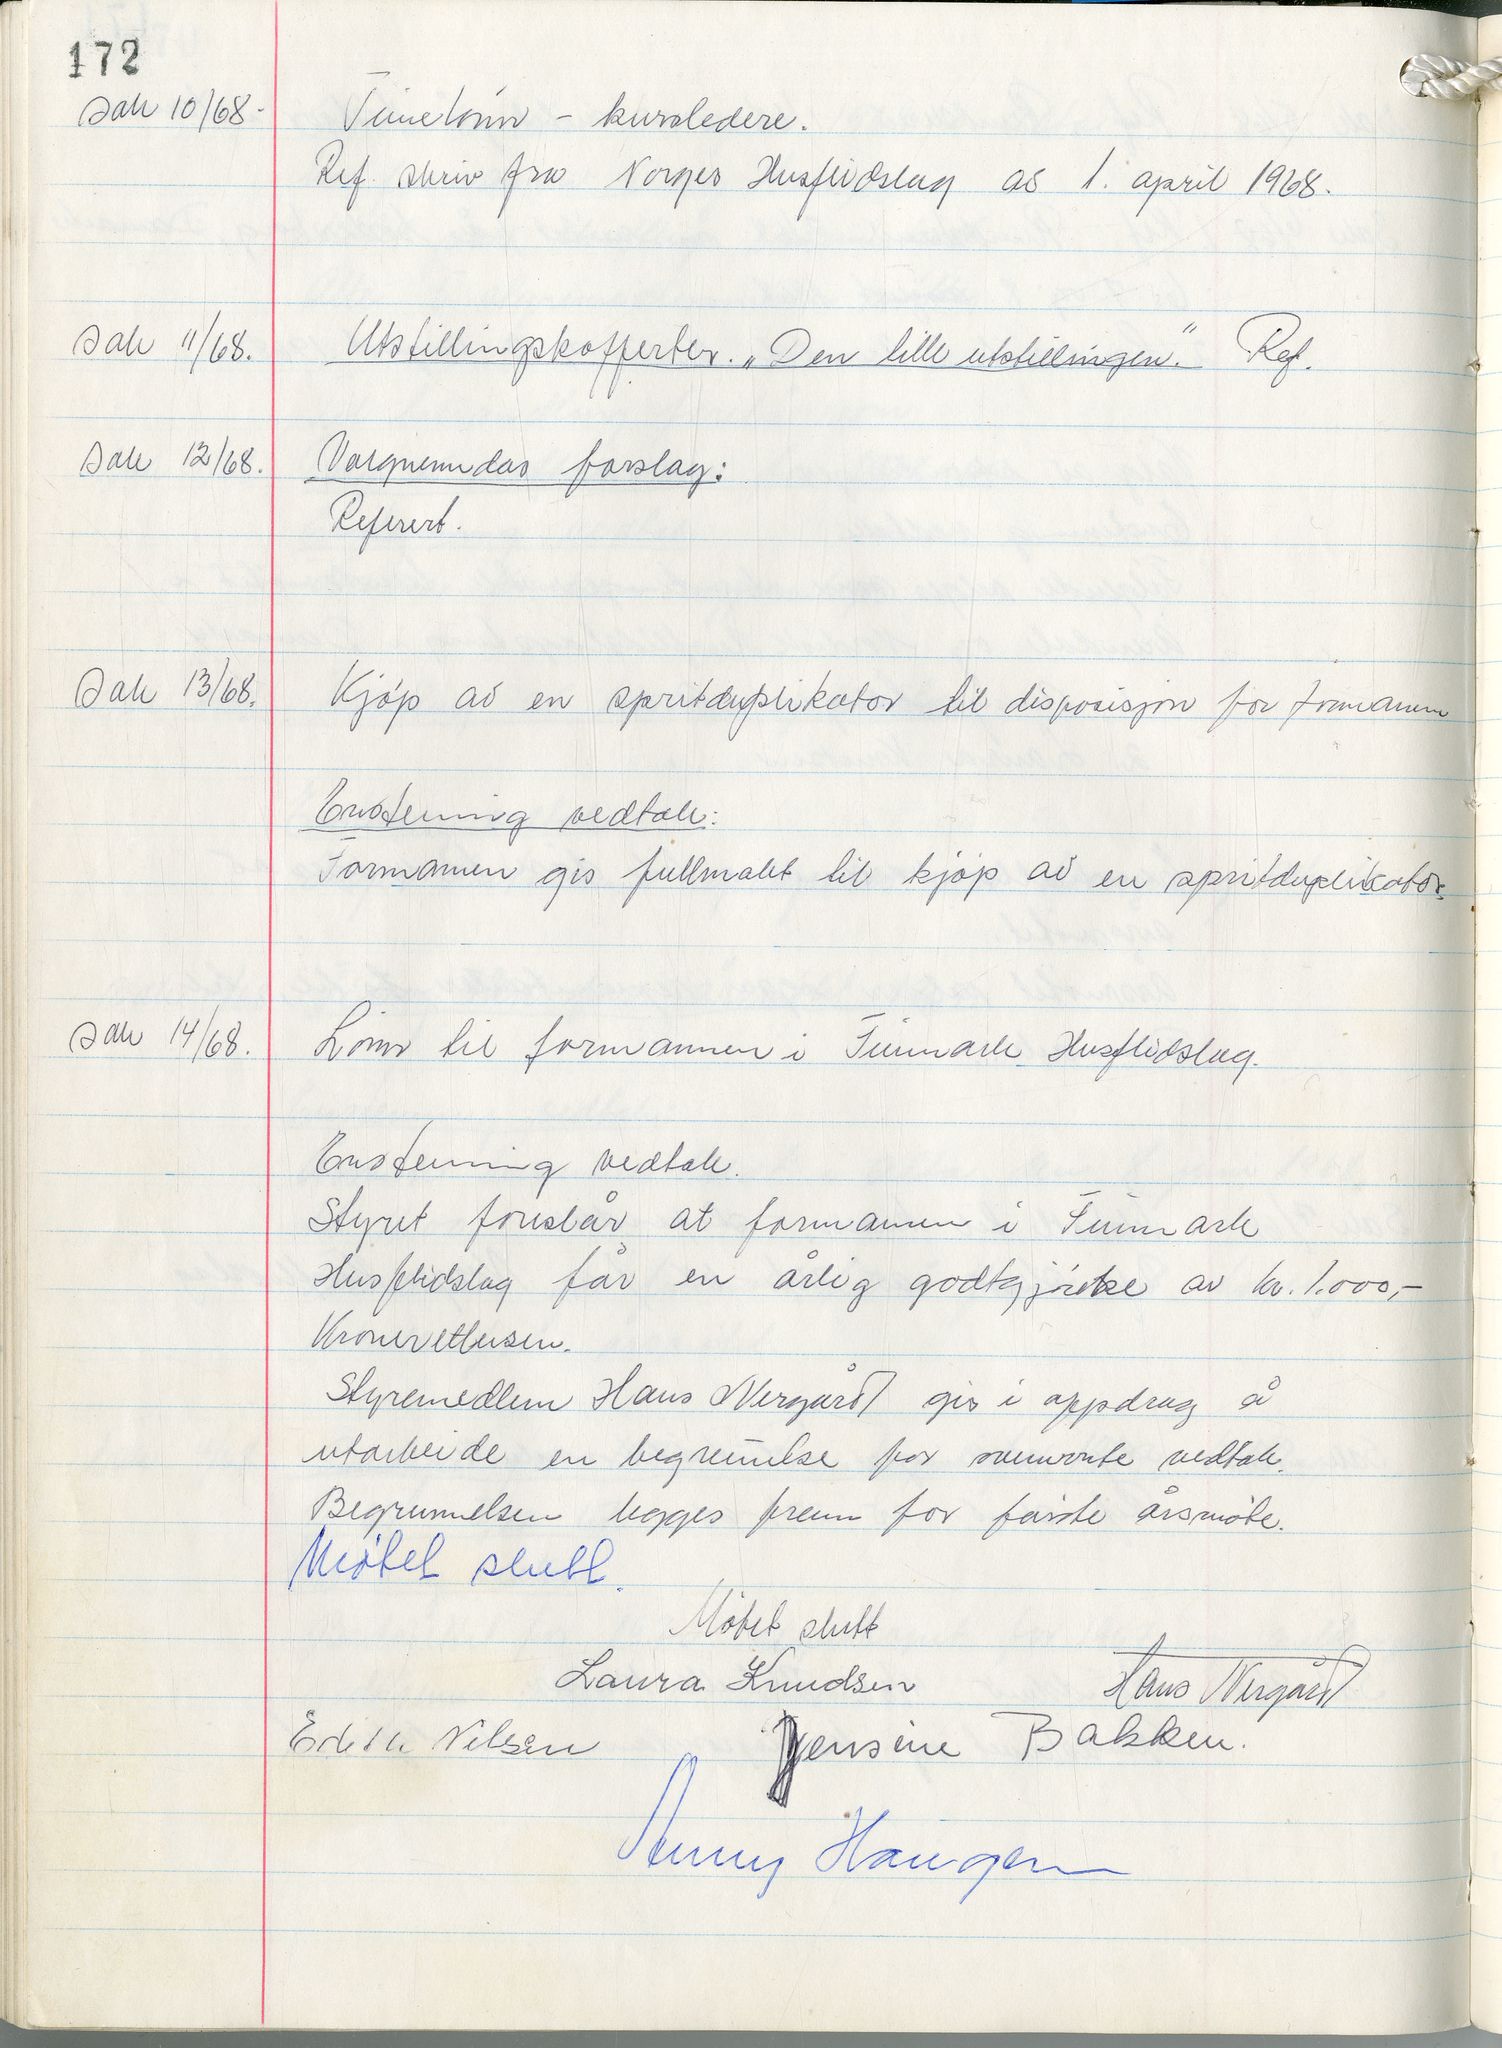 172
Sak 10/68. Timelønn - kursledere.
Ref. skriv fra Norges Husflidslag av 1. april 1968.
Sak 11/68. Utstillingskofferter. „Den lille utstillingen." Ref.
Sak 12/68. Valgnemdas forslag:
Referert.
Sak 13/68. Kjøp av en spritduplikator til disposisjon for formannen
Enstemmig vedtak:
Formannen gis fullmakt til kjøp av en spritduplikator.
Sak 14/68. Lønn til formannen i Finnmark Husflidslag.
Enstemmig vedtak.
Styret foreslår at formannen i Finnmark
Husflidslag får en årlig godtgjørelse av kr. 1.000,-
Kroneretthusen.
Styremedlem Hans Nergård gis i oppdrag å
utarbeide en begrunnelse for ovennevnte vedtak.
Begrunnelsen legges frem for første årsmøte.
Møtet slutt.
Møtet slutt
Laura Knudsen Hans Nergård
Edith Nilsen Jensine Bakken.
Jenny Haugen